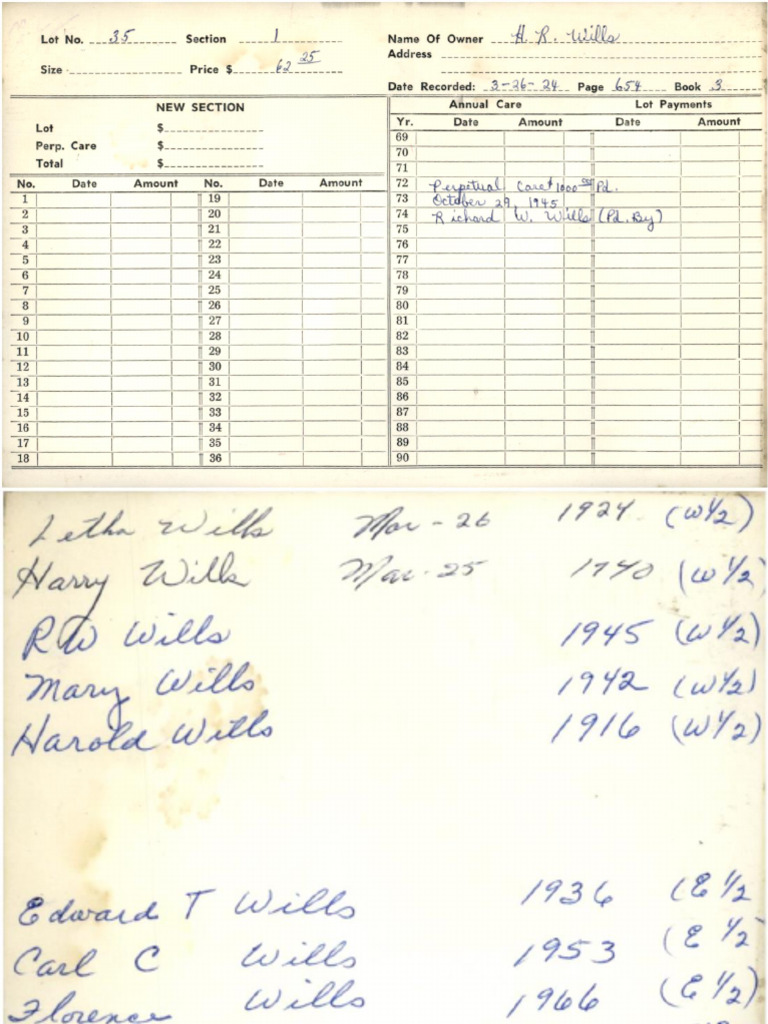 Lot No. 35 Section 1
Size Price $ 62 25
Name Of Owner H. R. Wills
Address
Date Recorded: 3-26-24 Page 654 Book 3
NEW SECTION
Lot $
Perp. Care $
Total $
No. Date Amount No. Date Amount
1 19
2 20
3 21
4 22
5 23
6 24
7 25
8 26
9 27
10 28
11 29
12 30
13 31
14 32
15 33
16 34
17 35
18 36
Annual Care Lot Payments
Yr. Date Amount Date Amount
69
70
71
72 Perpetual Care $1000 00 Pd.
73 October 29, 1945
74 Richard W. Wills (Pd. By)
75
76
77
78
79
80
81
82
83
84
85
86
87
88
89
90
Letha Wills Mar - 26 1924 (W 1/2)
Harry Wills Mar - 25 1940 (W 1/2)
RW Wills 1945 (W 1/2)
Mary Wills 1942 (W 1/2)
Harold Wills 1916 (W 1/2)
Edward T Wills 1936 (E 1/2
Carl C Wills 1953 (E 1/2
Florence Wills 1966 (E 1/2)